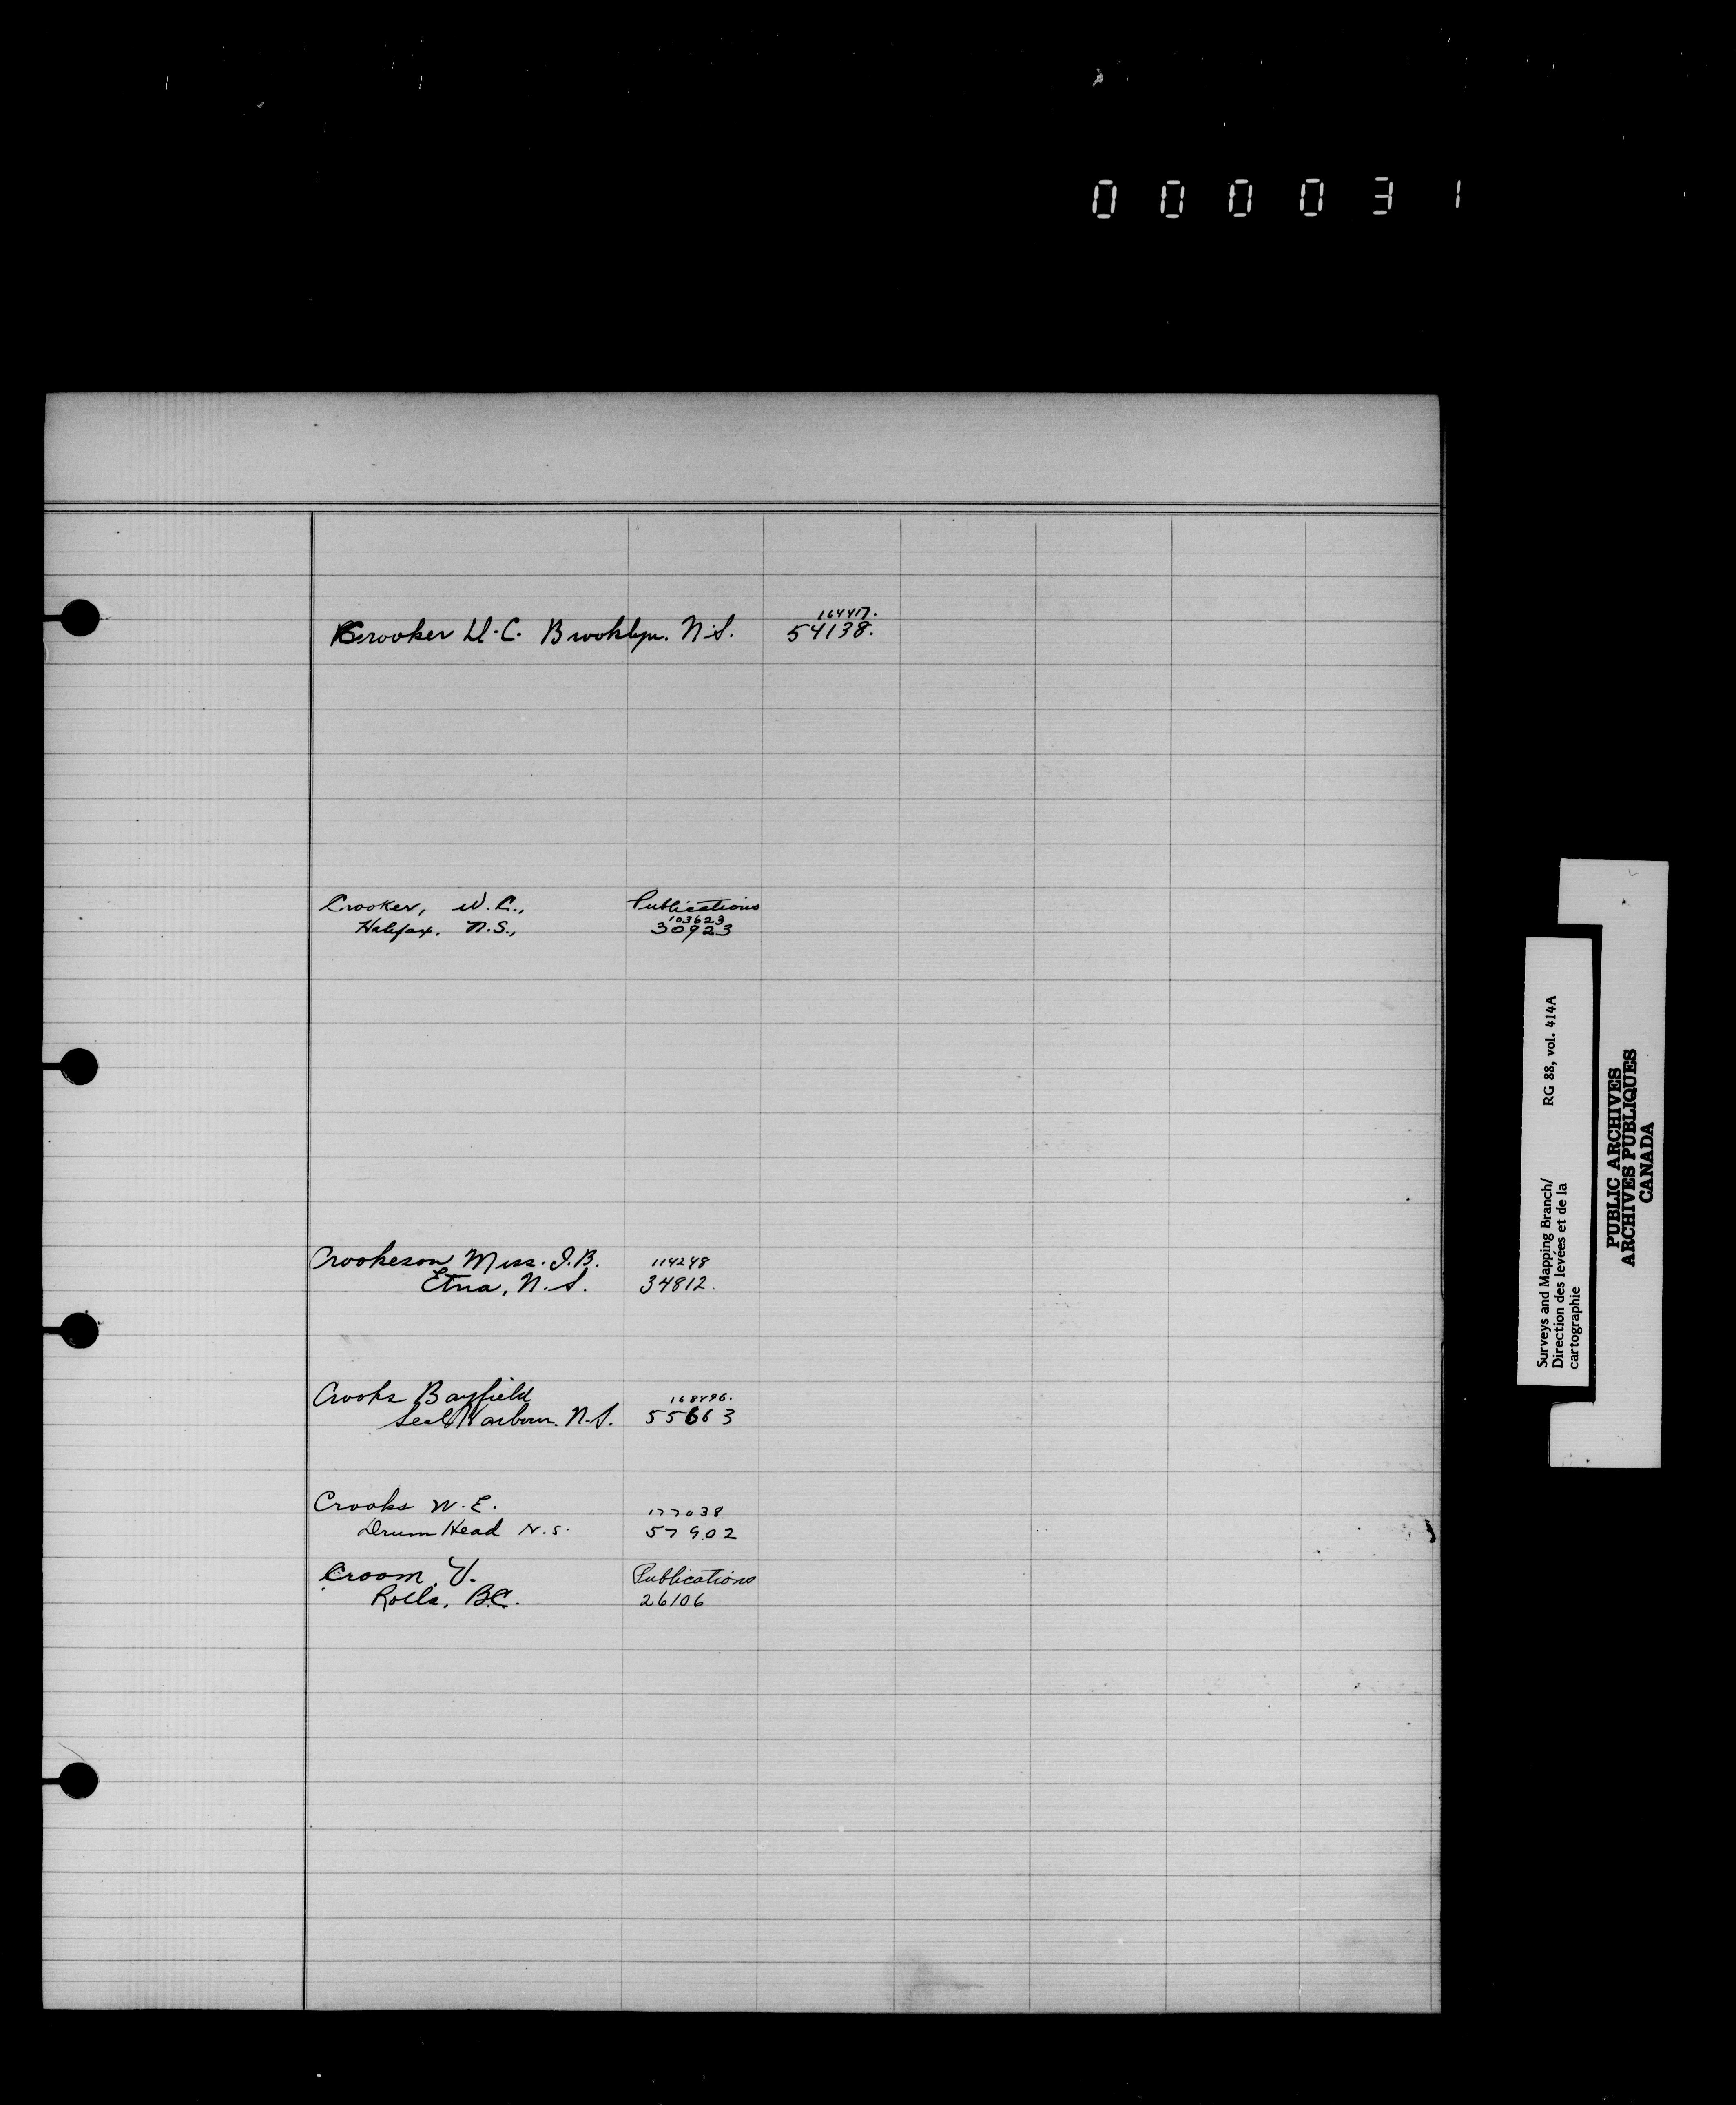 000031
164417.
Crooker H.C. Brooklyn. N.S. 54138.
Crooker, W.C., Publications
103623
Halifax, N.S., 30923
Crookeson Miss. I.B. 114248
Etna, N.S. 34812.
Crooks Bayfield 168496.
Seal Harbour. N.S. 55663
Crooks W.E. 177038
Drum Head N.S. 57902
Croom, V. Publications
Rolla, B.C. 26106
Surveys and Mapping Branch/ RG 88, vol. 414A
Direction des levées et de la
cartographie
PUBLIC ARCHIVES
ARCHIVES PUBLIQUES
CANADA